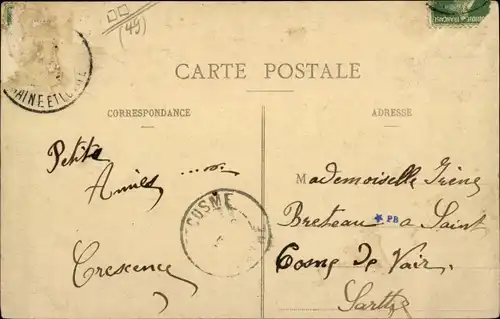 (49)
MAINE ET LOIRE
CARTE POSTALE
CORRESPONDANCE
ADRESSE
Petite
Amies
Crescence
COSME
Mademoiselle Irène
Breteau a Saint
PB
Cosme de Vair
Sarthe